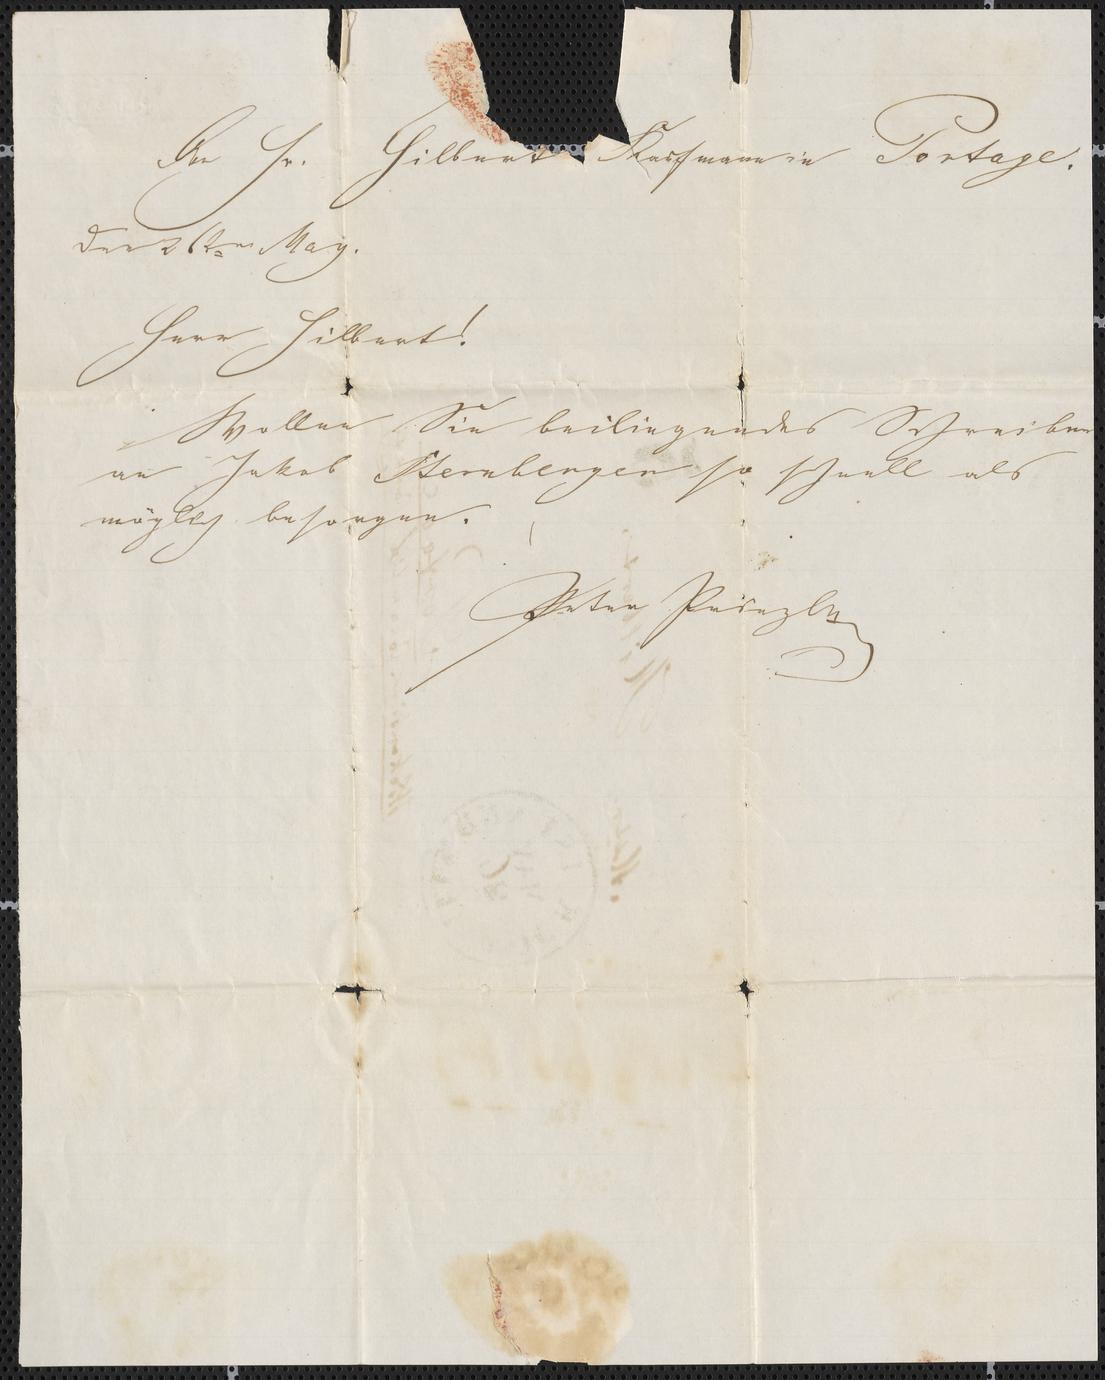 An Hr. Hilbert Kaufmann in Portage.
Den 26ten May.
Herr Hilbert!
Wollen Sie beiliegendes Schreiben
an Jakob Sternberger so schnell als
möglich besorgen.
Peter